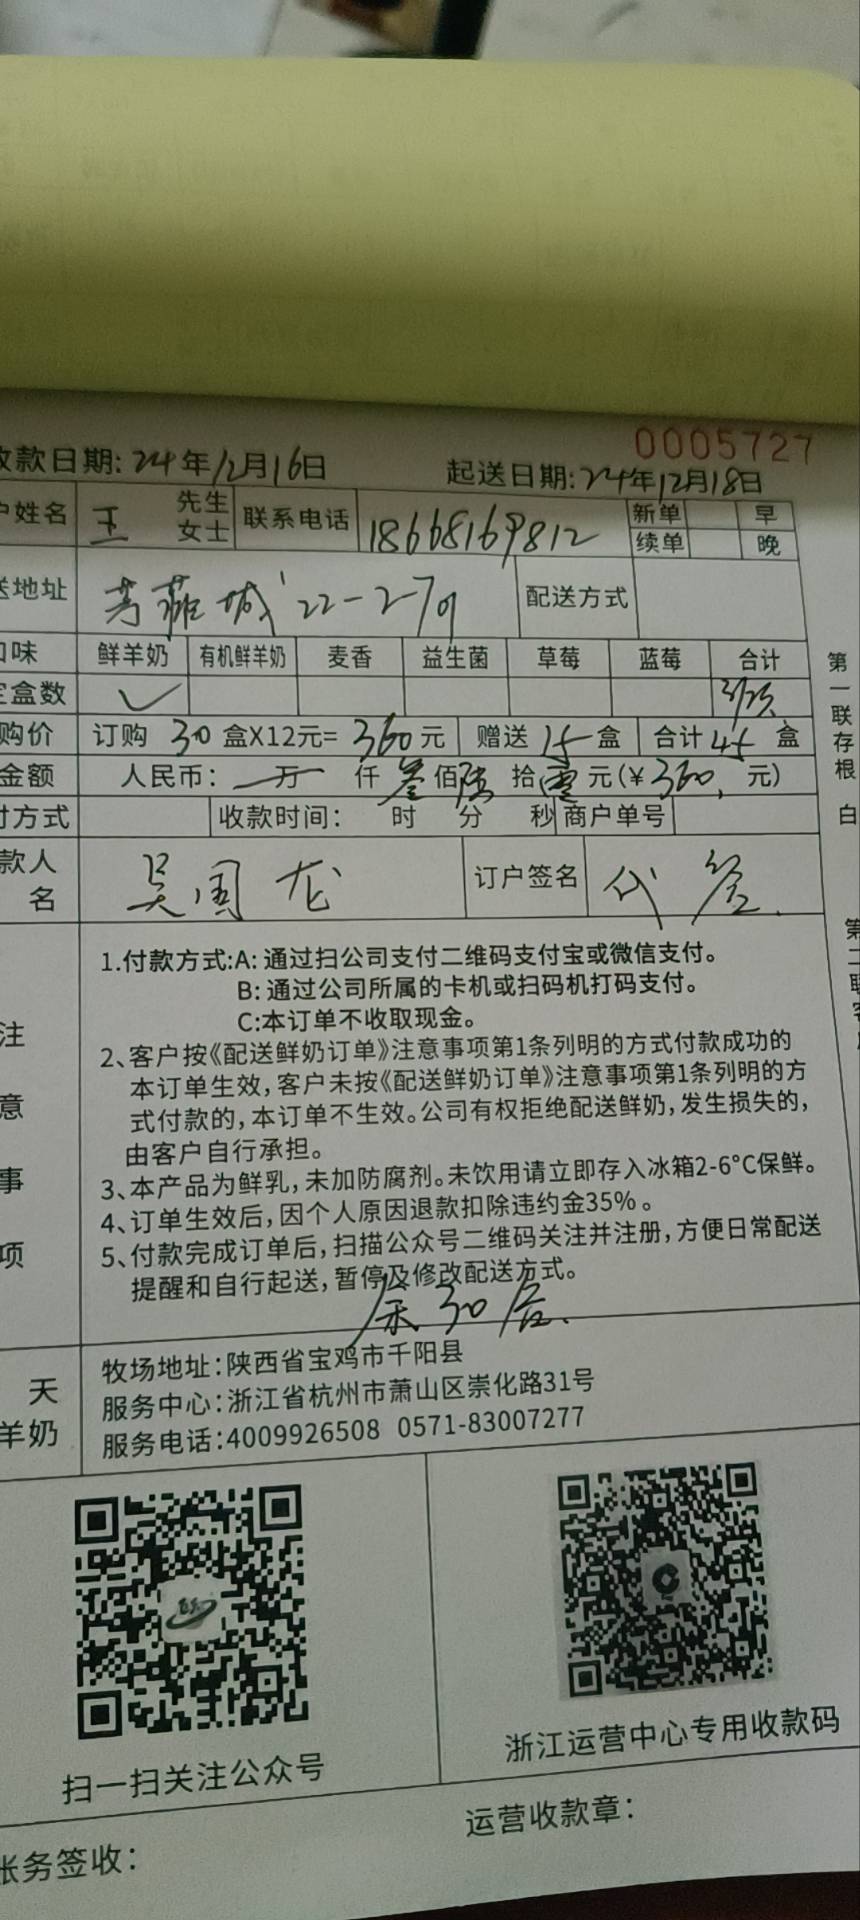 0005727
收款日期: 24年12月16日 起送日期: 24年12月18日
户姓名 王 先生 女士 联系电话 18668169812 新单 早
续单 晚
送地址 22-2-701 配送方式
口味 鲜羊奶 有机鲜羊奶 麦香 益生菌 草莓 蓝莓 合计
定盒数 ✓
购价 订购 30 盒X12元= 360元 赠送 15 盒 合计 45 盒
金额 人民币: 万 仟 叁佰陆拾零元(¥360. 元)
付方式 收款时间: 时 分 秒 商户单号
款人名 吴国龙 订户签名 代签.
注意事项
1.付款方式:A: 通过扫公司支付二维码支付宝或微信支付。
B: 通过公司所属的卡机或扫码机打码支付。
C:本订单不收取现金。
2、客户按《配送鲜奶订单》注意事项第1条列明的方式付款成功的
本订单生效,客户未按《配送鲜奶订单》注意事项第1条列明的方
式付款的,本订单不生效。公司有权拒绝配送鲜奶,发生损失的,
由客户自行承担。
3、本产品为鲜乳,未加防腐剂。未饮用请立即存入冰箱2-6°C保鲜。
4、订单生效后,因个人原因退款扣除违约金35%。
5、付款完成订单后,扫描公众号二维码关注并注册,方便日常配送
提醒和自行起送,暂停及修改配送方式。
余30后.
天
羊奶
牧场地址:陕西省宝鸡市千阳县
服务中心:浙江省杭州市萧山区崇化路31号
服务电话:4009926508 0571-83007277
扫一扫关注公众号
浙江运营中心专用收款码
账务签收:
运营收款章:
第一联存根 白
第二联客